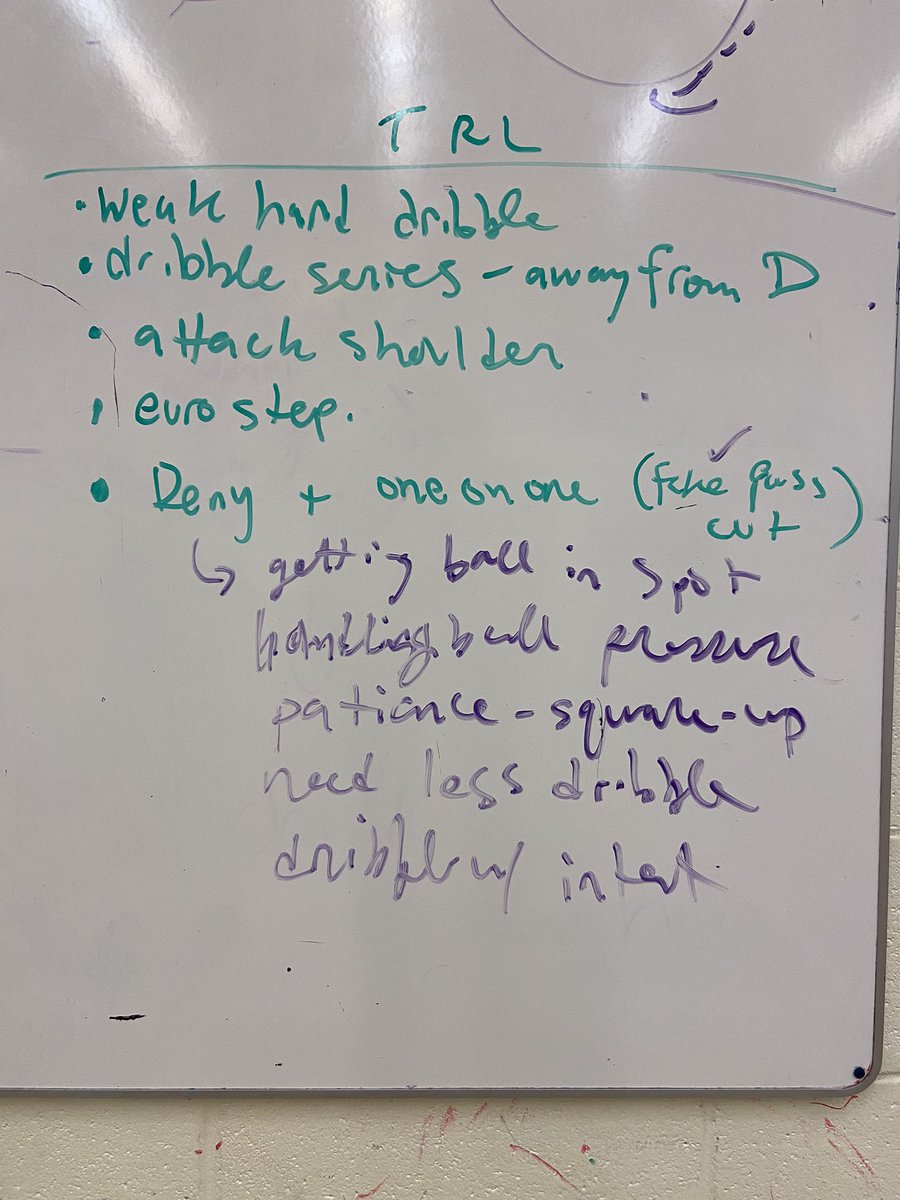 TRL
• weak hand dribble
• dribble series - away from D
• attack shoulder
• euro step.
• Deny + one on one (fake pass
cut)
↳ getting ball in spot
handling ball pressure
patiance - square-up
need less dribble
dribble w/ intent